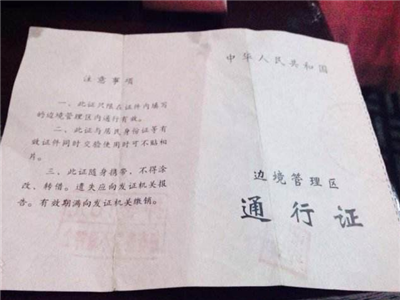 注意事项
一、此证只限在证件内填写
的边境管理区内通行有效。
二、此证与居民身份证等有
效证件同时交验使用时可不贴相
片。
三、此证随身携带、不得涂
改、转借。遗失应向发证机关报
告。有效期满向发证机关缴销。
中华人民共和国
边境管理区
通行证